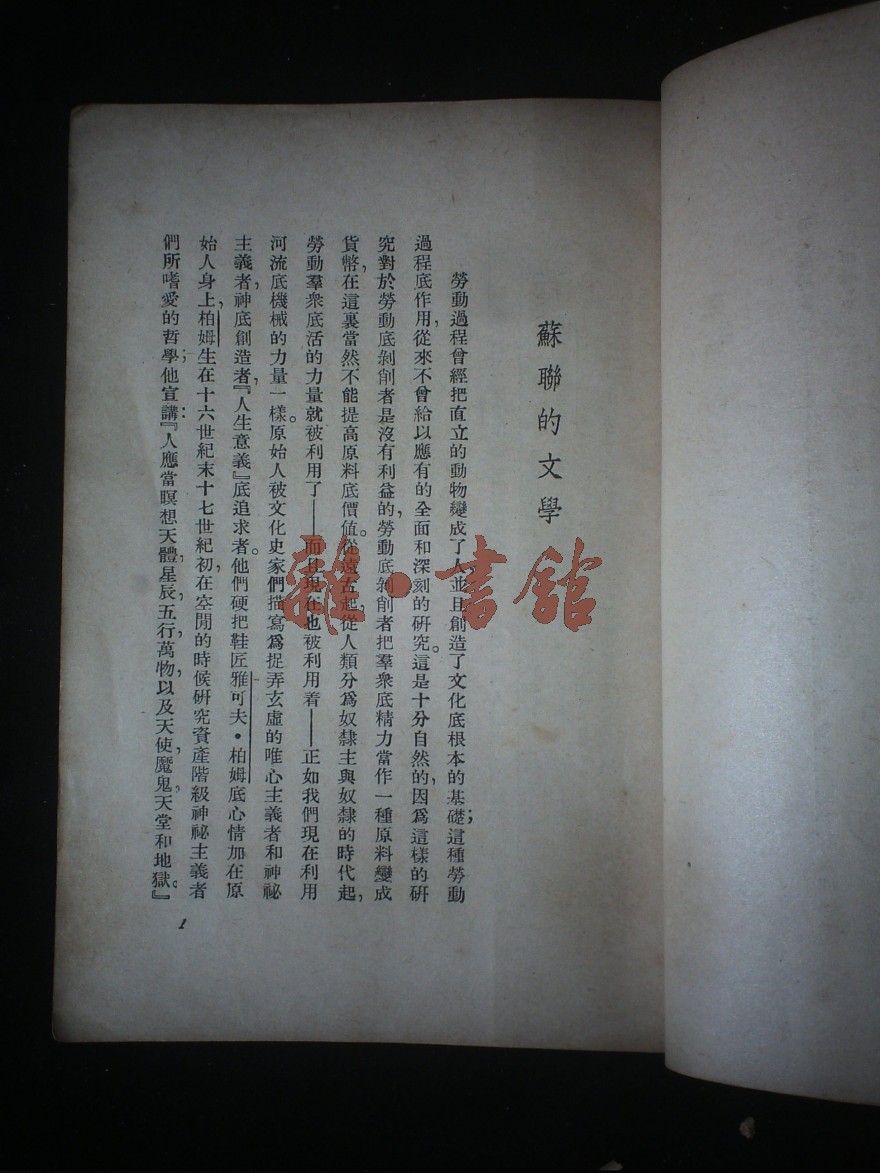 蘇聯的文學
勞動過程曾經把直立的動物變成了人，並且創造了文化底根本的基礎；這種勞動
過程底作用，從來不曾給以應有的全面和深刻的研究。這是十分自然的，因爲這樣的研
究對於勞動底剝削者是沒有利益的，勞動底剝削者把羣衆底精力當作一種原料變成
貨幣，在這裏當然不能提高原料底價值。從遠古起，從人類分爲奴隸主與奴隸的時代起，
勞動羣衆底活的力量就被利用了——而且現在也被利用着——正如我們現在利用
河流底機械的力量一樣。原始人被文化史家們描寫爲捉弄玄虛的唯心主義者和神祕
主義者，神底創造者，『人生意義』底追求者。他們硬把鞋匠雅可夫•柏姆底心情加在原
始人身上，柏姆生在十六世紀末十七世紀初，在空閒的時候研究資產階級神祕主義者
們所嗜愛的哲學；他宣講：『人應當瞑想天體，星辰，五行，萬物，以及天使，魔鬼，天堂和地獄。』
1
雜•書館